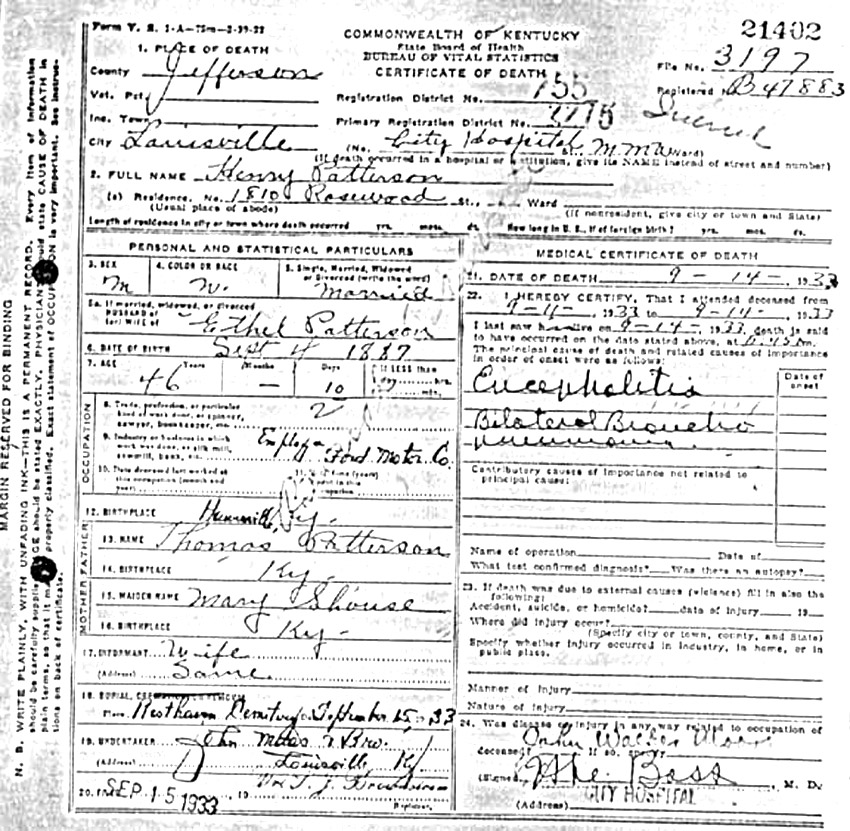 Form V. S. 1-A—75m—2-39-22
21402
COMMONWEALTH OF KENTUCKY
State Board of Health
BUREAU OF VITAL STATISTICS
CERTIFICATE OF DEATH
1. PLACE OF DEATH
County Jefferson
File No. 3197
Vot. Pct.
Registration District No. 755
Registered No. B47883
Inc. Town
Primary Registration District No. 2775
City Louisville
(No. City Hospital St. Ward)
(If death occurred in a hospital or institution, give its NAME instead of street and number)
2. FULL NAME Henry Patterson
(a) Residence. No. 1810 Rosewood St., Ward
(Usual place of abode) (If nonresident, give city or town and State)
Length of residence in city or town where death occurred yrs. mos. ds. How long in U. S., if of foreign birth? yrs. mos. ds.
PERSONAL AND STATISTICAL PARTICULARS
3. SEX M
4. COLOR OR RACE W.
5. Single, Married, Widowed or Divorced (write the word) Married
5a. If married, widowed, or divorced
HUSBAND of
(or) Wife of Ethel Patterson
6. DATE OF BIRTH Sept 4 1887
7. AGE 46 Years — Months 10 Days If LESS than
8. Trade, profession, or particular
kind of work done, as spinner,
sawyer, bookkeeper, etc.
9. Industry or business in which
work was done, as silk mill,
sawmill, bank, etc. Ford Motor Co.
10. Date deceased last worked at
this occupation (month and
year)
OCCUPATION
12. BIRTHPLACE Ky.
13. NAME Thomas Patterson
14. BIRTHPLACE Ky.
15. MAIDEN NAME Mary Shouse
16. BIRTHPLACE Ky.
FATHER
MOTHER
17. INFORMANT Wife
(Address) Same
18. BURIAL, CREMATION OR REMOVAL
Place Resthaven Cemetery September 15, 33
19. UNDERTAKER John Maas & Bro.
(Address) Louisville Ky.
20. Filed SEP 15 1933, 19
Registrar.
MEDICAL CERTIFICATE OF DEATH
21. DATE OF DEATH 9-14-, 1933
22. I HEREBY CERTIFY, That I attended deceased from
, 1933 to 9-14-, 1933
I last saw h alive on 9-14-, 1933, death is said
to have occurred on the date stated above, at
The principal cause of death and related causes of importance
in order of onset were as follows:
Date of onset
Encephalitis
Bilateral Broncho
pneumonia
Contributory causes of importance not related to
principal cause:
Name of operation Date of
What test confirmed diagnosis? Was there an autopsy?
23. If death was due to external causes (violence) fill in also the
following:
Accident, suicide, or homicide? date of injury 19
Where did injury occur?
(Specify city or town, county, and State)
Specify whether injury occurred in industry, in home, or in
public place.
Manner of Injury
Nature of Injury
24. Was disease or injury in any way related to occupation of
deceased? If so, specify
(Signed) Bass M. D.
(Address) CITY HOSPITAL
MARGIN RESERVED FOR BINDING
N. B. WRITE PLAINLY, WITH UNFADING INK—THIS IS A PERMANENT RECORD. Every item of information
should be carefully supplied. AGE should be stated EXACTLY. PHYSICIANS should state CAUSE OF DEATH in
plain terms, so that it may be properly classified. Exact statement of OCCUPATION is very important. See instruc-
tions on back of certificate.